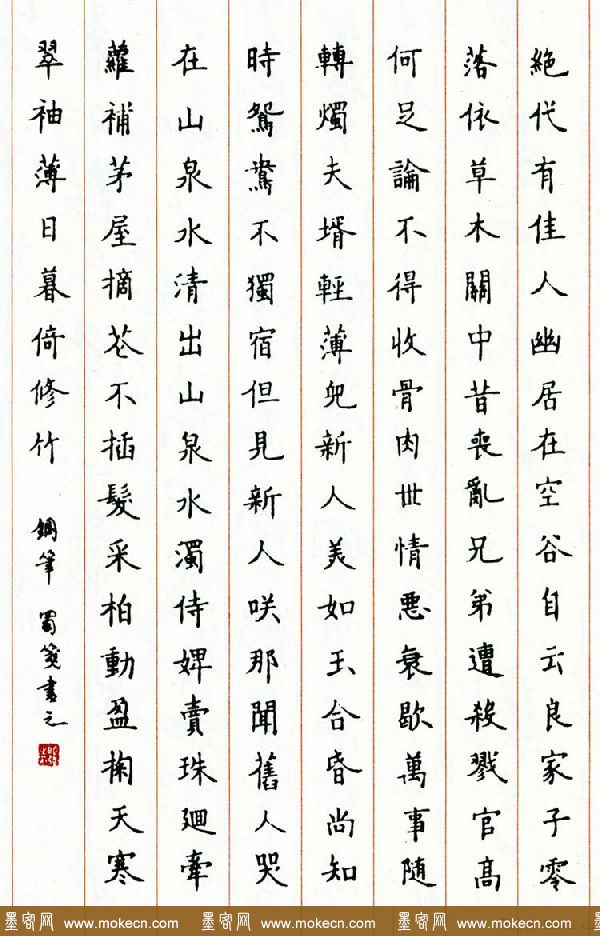 絶代有佳人幽居在空谷自云良家子零
落依草木關中昔喪亂兄弟遭殺戮官高
何足論不得收骨肉世情悪衰歇萬事隨
轉燭夫壻輕薄兒新人美如玉合昏尚知
時鴛鴦不獨宿但見新人咲那聞舊人哭
在山泉水清出山泉水濁侍婢賣珠廻牽
蘿補茅屋摘花不插髮采柏動盈掬天寒
翠袖薄日暮倚修竹
鋼筆 蜀箋書之
墨客网 www.mokecn.com 墨客网 www.mokecn.com 墨客网 www.mokecn.com